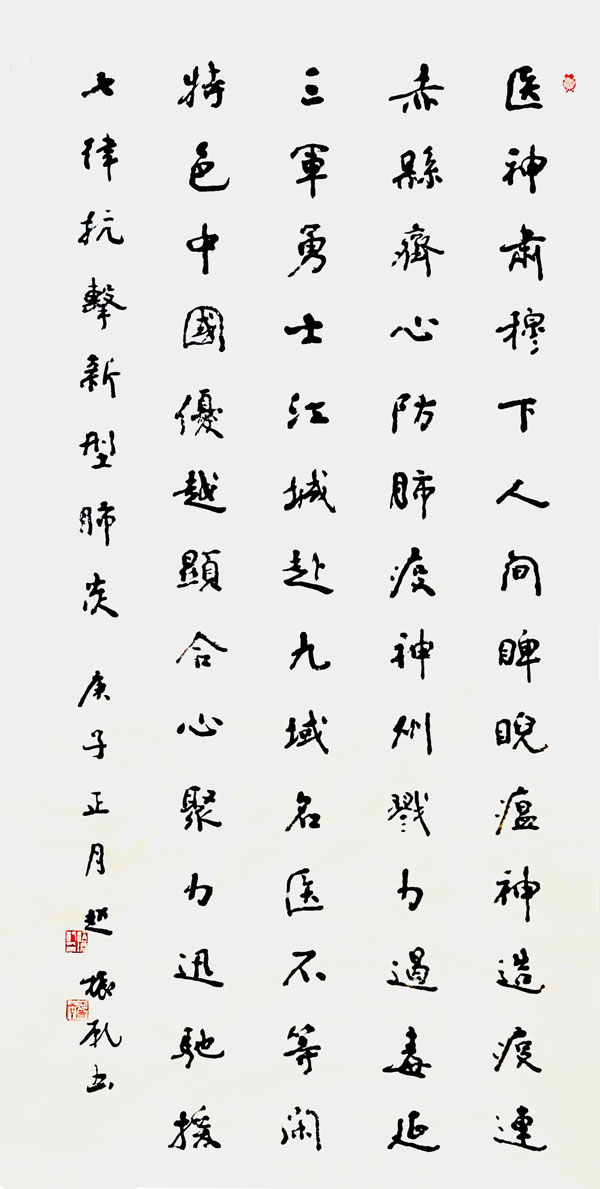 医神肅穆下人间睥睨瘟神造疫連
赤縣齊心防肺疫神州戮力遏毒延
三軍勇士江城赴九域名医不等闲
特色中國優越顯合心聚力迅馳援
七律抗擊新型肺炎 庚子正月趙振乾书